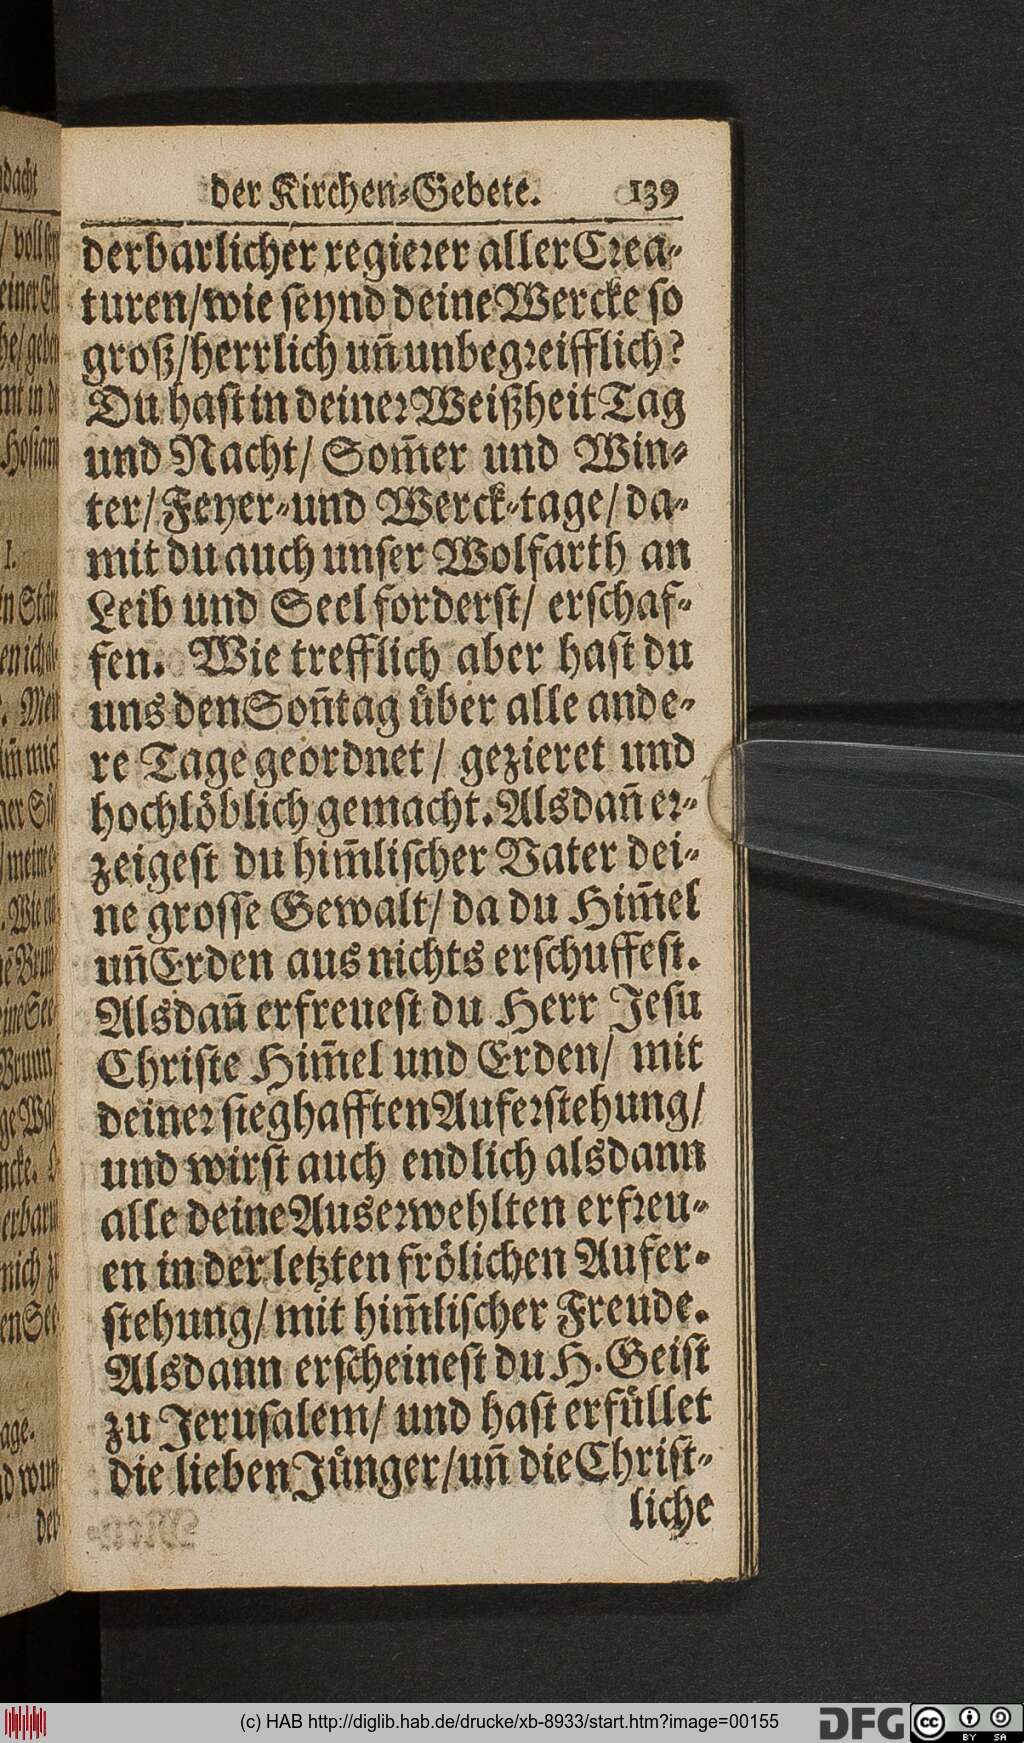 der Kirchen-Gebete. 139
derbarlicher regierer aller Crea-
turen/wie seynd deine Wercke so
groß/herrlich uñ unbegreifflich?
Du hast in deiner Weißheit Tag
und Nacht/ Som̃er und Win-
ter/ Feyer-und Werck-tage/ da-
mit du auch unser Wolfarth an
Leib und Seel forderst/ erschaf-
fen. Wie trefflich aber hast du
uns den Soñtag uͤber alle ande-
re Tage geordnet/ gezieret und
hochloͤblich gemacht. Alsdañ er-
zeigest du him̃lischer Vater dei-
ne grosse Gewalt/ da du Him̃el
uñ Erden aus nichts erschuffest.
Alsdañ erfreuest du Herr Jesu
Christe Him̃el und Erden/ mit
deiner sieghafften Auferstehung/
und wirst auch endlich alsdann
alle deine Auserwehlten erfreu-
en in der letzten froͤlichen Aufer-
stehung/ mit him̃lischer Freude.
Alsdann erscheinest du H. Geist
zu Jerusalem/ und hast erfuͤllet
die lieben Juͤnger/uñ die Christ-
liche
(c) HAB http://diglib.hab.de/drucke/xb-8933/start.htm?image=00155
DFG
cc BY SA